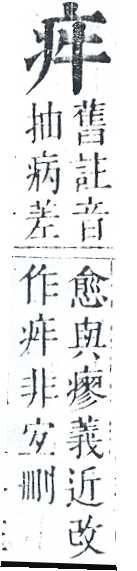 舊註音
抽病差
愈與瘳義近改
作非宐刪